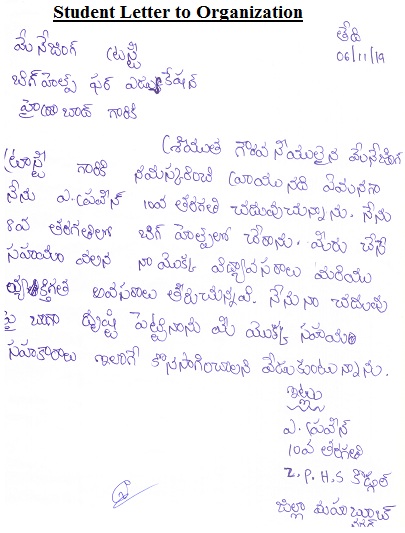 Student Letter to Organization
తేది
06/11/19
మేనేజింగ్ ట్రస్టీ
బిగ్ హెల్ప్ ఫర్ ఎడ్యుకేషన్
హైద్రాబాద్ గారికి
శ్రీయుత గౌరవనీయులైన మేనేజింగ్
ట్రస్టీ గారికి నమస్కరించి వ్రాయునది ఏమనగా
నేను ఎ. ప్రవీన్ 10వ తరగతి చదువుచున్నాను. నేను
8వ తరగతిలో బిగ్ హెల్ప్‌లో చేరాను. మీరు చేసే
సహాయం వలన నా యొక్క విద్యావసరాలు మరియు
వ్యక్తిగత అవసరాలు తీరుచున్నవి. నేను నా చదువు
పై బాగా దృష్టి పెట్టినాను మీ యొక్క సహాయ
సహకారాలు ఇలాగే కొనసాగించాలని వేడుకుంటున్నాను.
ఇట్లు
ఎ. ప్రవీన్
10వ తరగతి
Z.P.H.S
జిల్లా మహబూబ్
నగర్